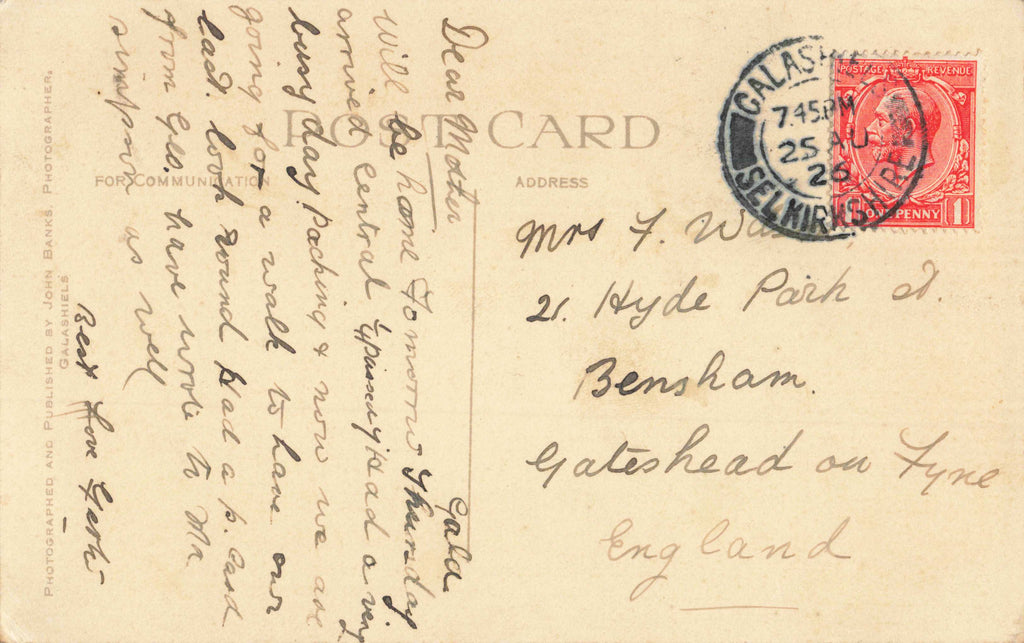 POST CARD
FOR COMMUNICATION
ADDRESS
Gala
Dear Mother
will be home Tomorrow Thursday
arrived Central Had a very
busy day Packing & now we are
going for a walk to have our
last look round Had a p. card
from Geo. have wrote to Mr
simpson as well
Best Love
PHOTOGRAPHED AND PUBLISHED BY JOHN BANKS, PHOTOGRAPHER,
GALASHIELS
GALASHIE
7.45PM
25 AU
26
SELKIRKSHIRE
POSTAGE REVENUE
ONE PENNY 1
Mrs F.
21. Hyde Park St.
Bensham.
Gateshead on Tyne
England